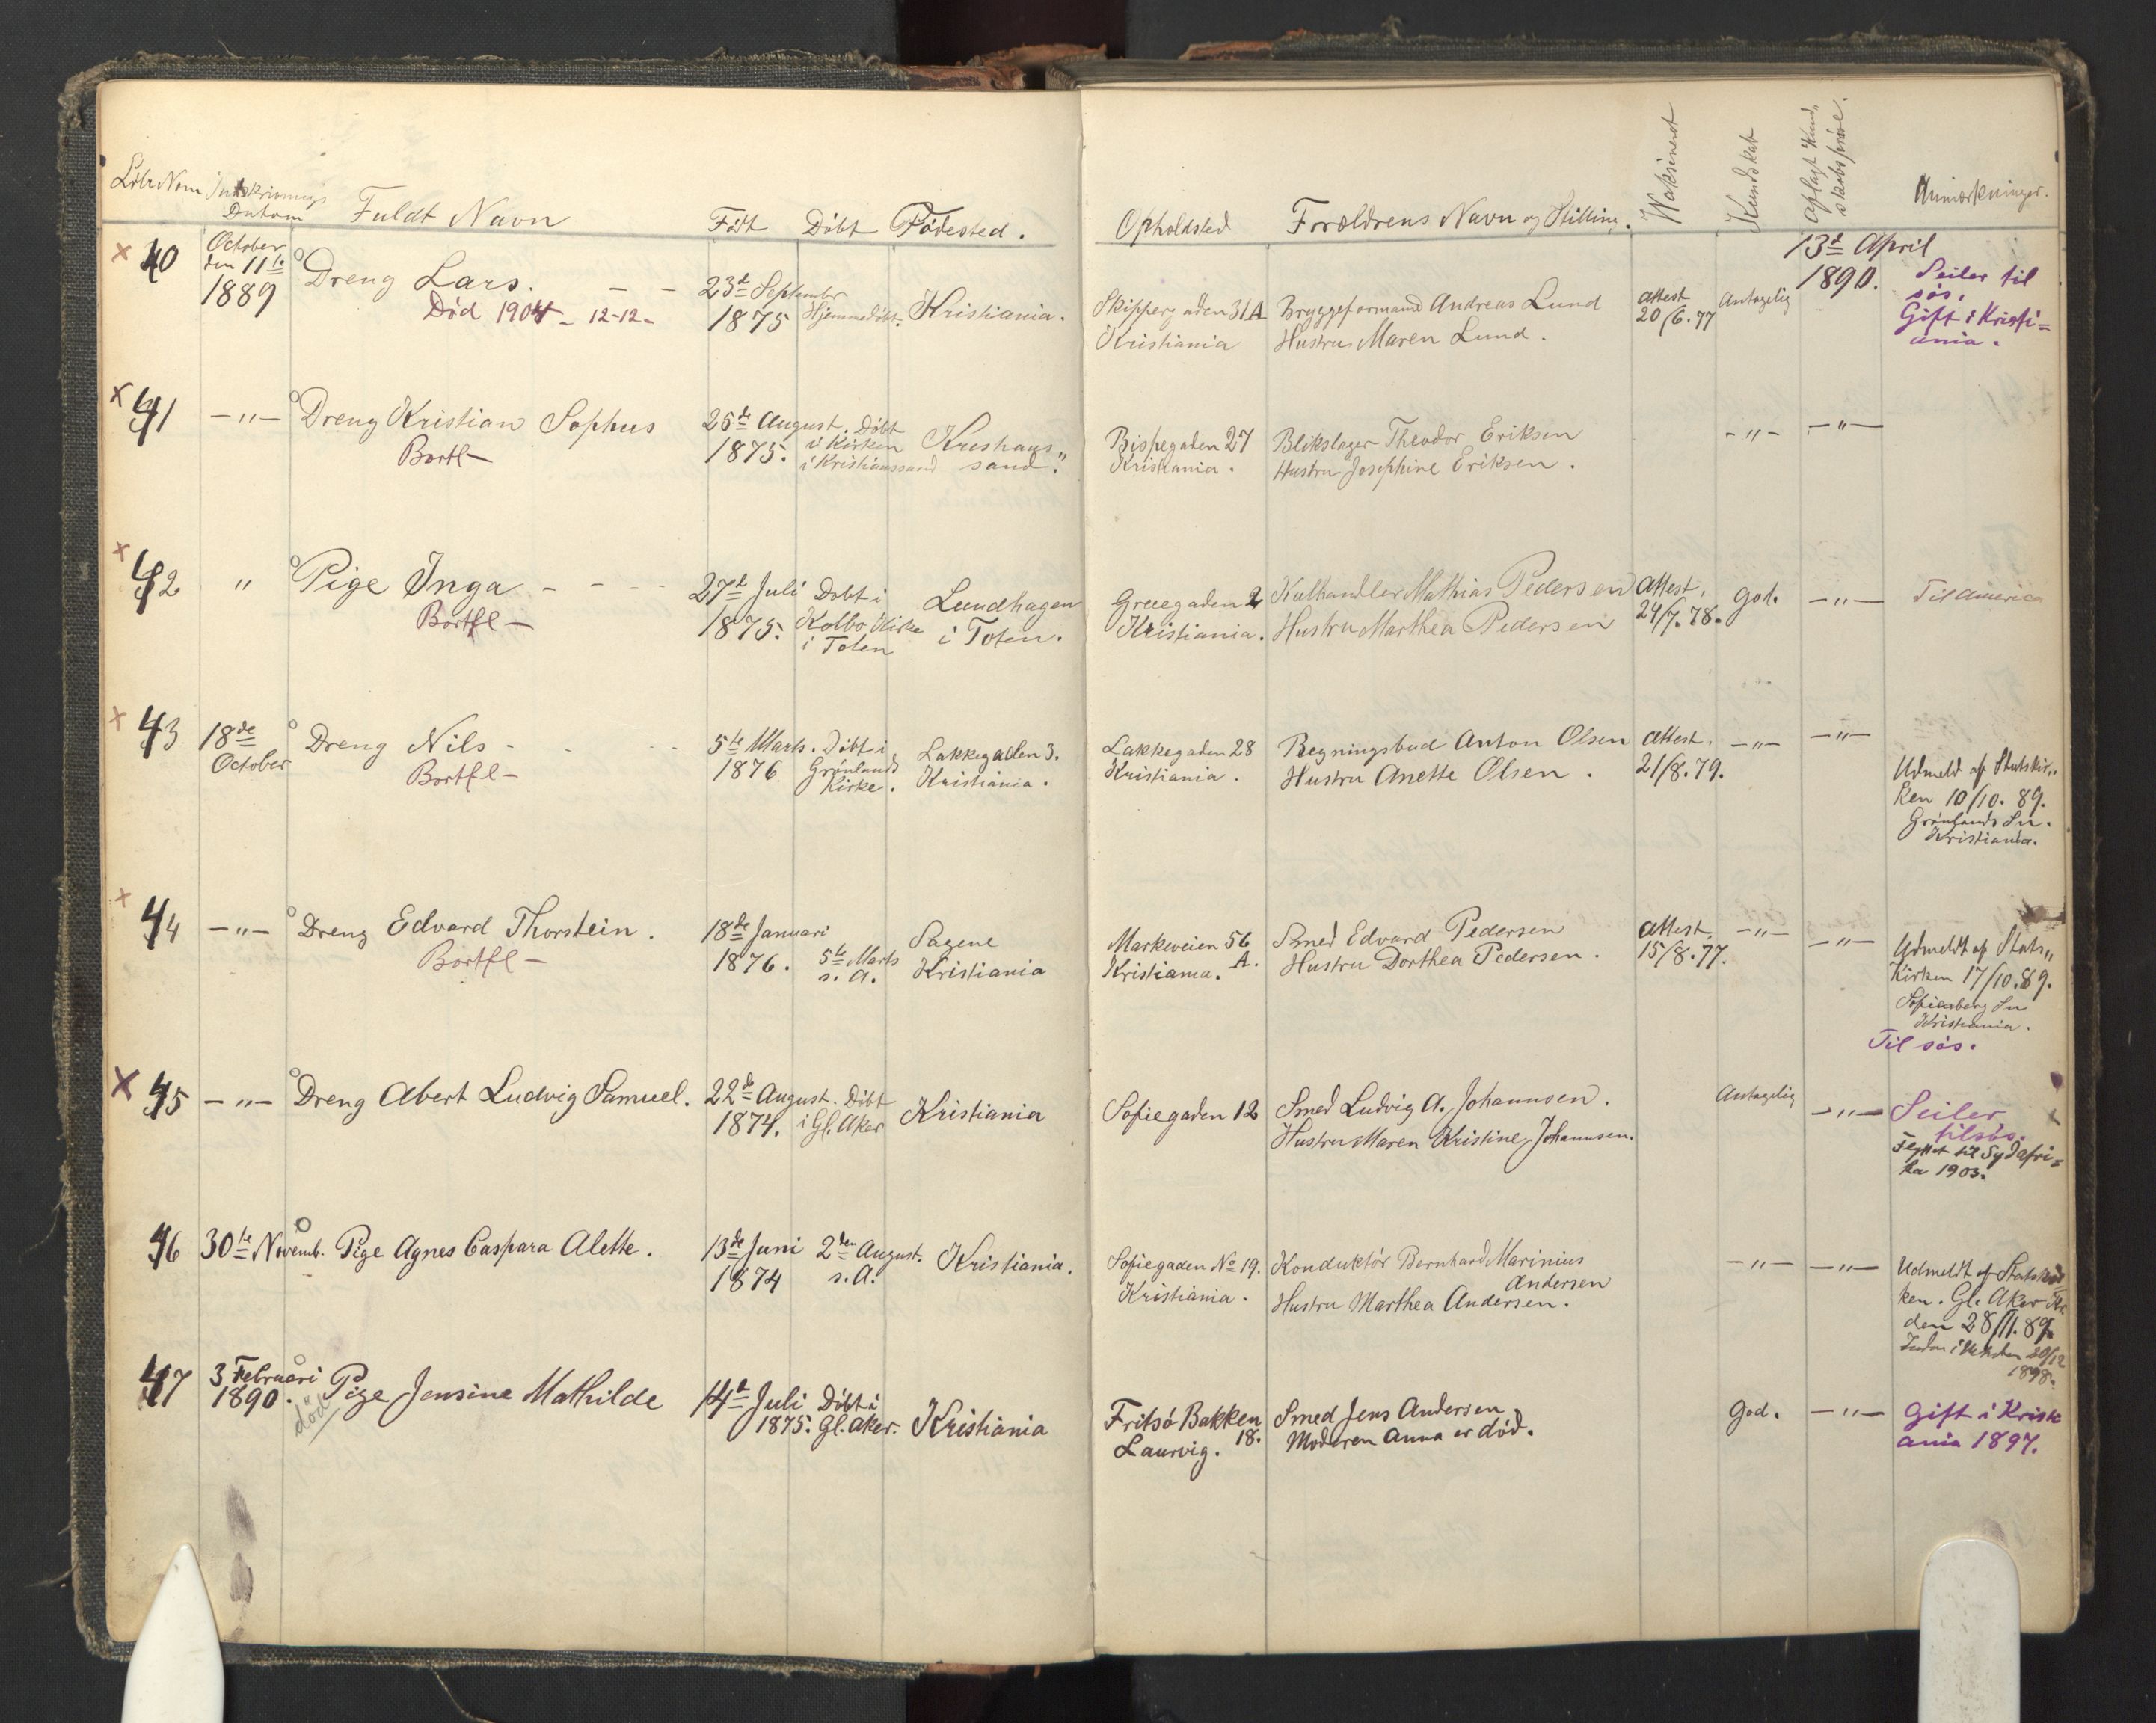 LöbeNom Indskrivnings Datum Fuldt Navn Födt Döbt Födested. Opholdsted Forældrens Navn og Stilling. Waksineret Kundskab Aflagt Kund„ skabspröve. Anmærkninger.
× 40 October den 11te 1889 Dreng Lars. 23de September 1875 Hjemmedöbt. Kristiania. Skippergaden 31A Kristiania Bryggeformand Andreas Lund Hustru Maren Lund. attest 20/6.77 Antagelig 13de April 1890. Seiler til sös. Gift i Kristi= ania.
Död 1904 - 12-12-
× 41 -"- Dreng Kristian Sophus 25de August 1875. Döbt i Kirken i Kristianssand Kristians„ sand. Bispegaden 27 Kristiania. Blikslager Theodor Eriksen Hustru Josephine Eriksen. -"- -"-
Bortfl-
× 42 " Pige Inga 27de Juli 1875. Döbt i Kolbo Kirke i Toten Lundhagen i Toten. Grueegaden 2 Kristiania. Kulhandler Mathias Pedersen Hustru Marthea Pedersen attest. 24/7.78. god. -"- Til America
Bortfl-
× 43 18de October Dreng Nils 5te Marts. 1876 Döbt i Grönlands Kirke. Lakkegaden 3. Kristiania. Lakkegaden 28 Kristiania. Regningsbud Anton Olsen Hustru Anette Olsen. attest. 21/8.79. -"- -"- Udmeldt af Statskir„ ken 10/10.89. Grönlands Sn. Kristiania.
Bortfl-
× 44 -"- Dreng Edvard Thorstein. 18de Januari 1876. 5te Marts s. A. Sagene Kristiania Markveien 56 A. Kristiania. Smed Edvard Pedersen Hustru Dorthea Pedersen. attest. 15/8.77. -"- -"- Udmeldt af Stats„ Kirken 17/10.89. Sofienberg Sn Kristiania. Til sös.
Bortfl-
× 45 -"- Dreng Abert Ludvig Samuel. 22de August. 1874. Döbt i Gl. Aker Kristiania Sofiegaden 12 Smed Ludvig A. Johannsen. Hustru Maren Kristine Johannsen. Antagelig -"- Seiler tilsös. Flyttet til Sydafri= ka 1903.
46 30te Novemb. Pige Agnes Caspara Alette. 13de Juni 1874 2den August. s. A. Kristiania. Sofiegaden No 19. Kristiania. Konduktör Bernhard Marinius Andersen Hustru Marthea Andersen. -"- -"- Udmeldt af Statskir ken. Gl. Aker den 28/11.89. 20/12 1898.
47 3 Februari 1890. död Pige Jensine Mathilde 14de Juli 1875. Döbt i Gl. Aker. Kristiania Fritsö Bakken 18. Laurvig. Smed Jens Andersen, Moderen Anna er död. God. -"- Gift i Kristi ania 1897.